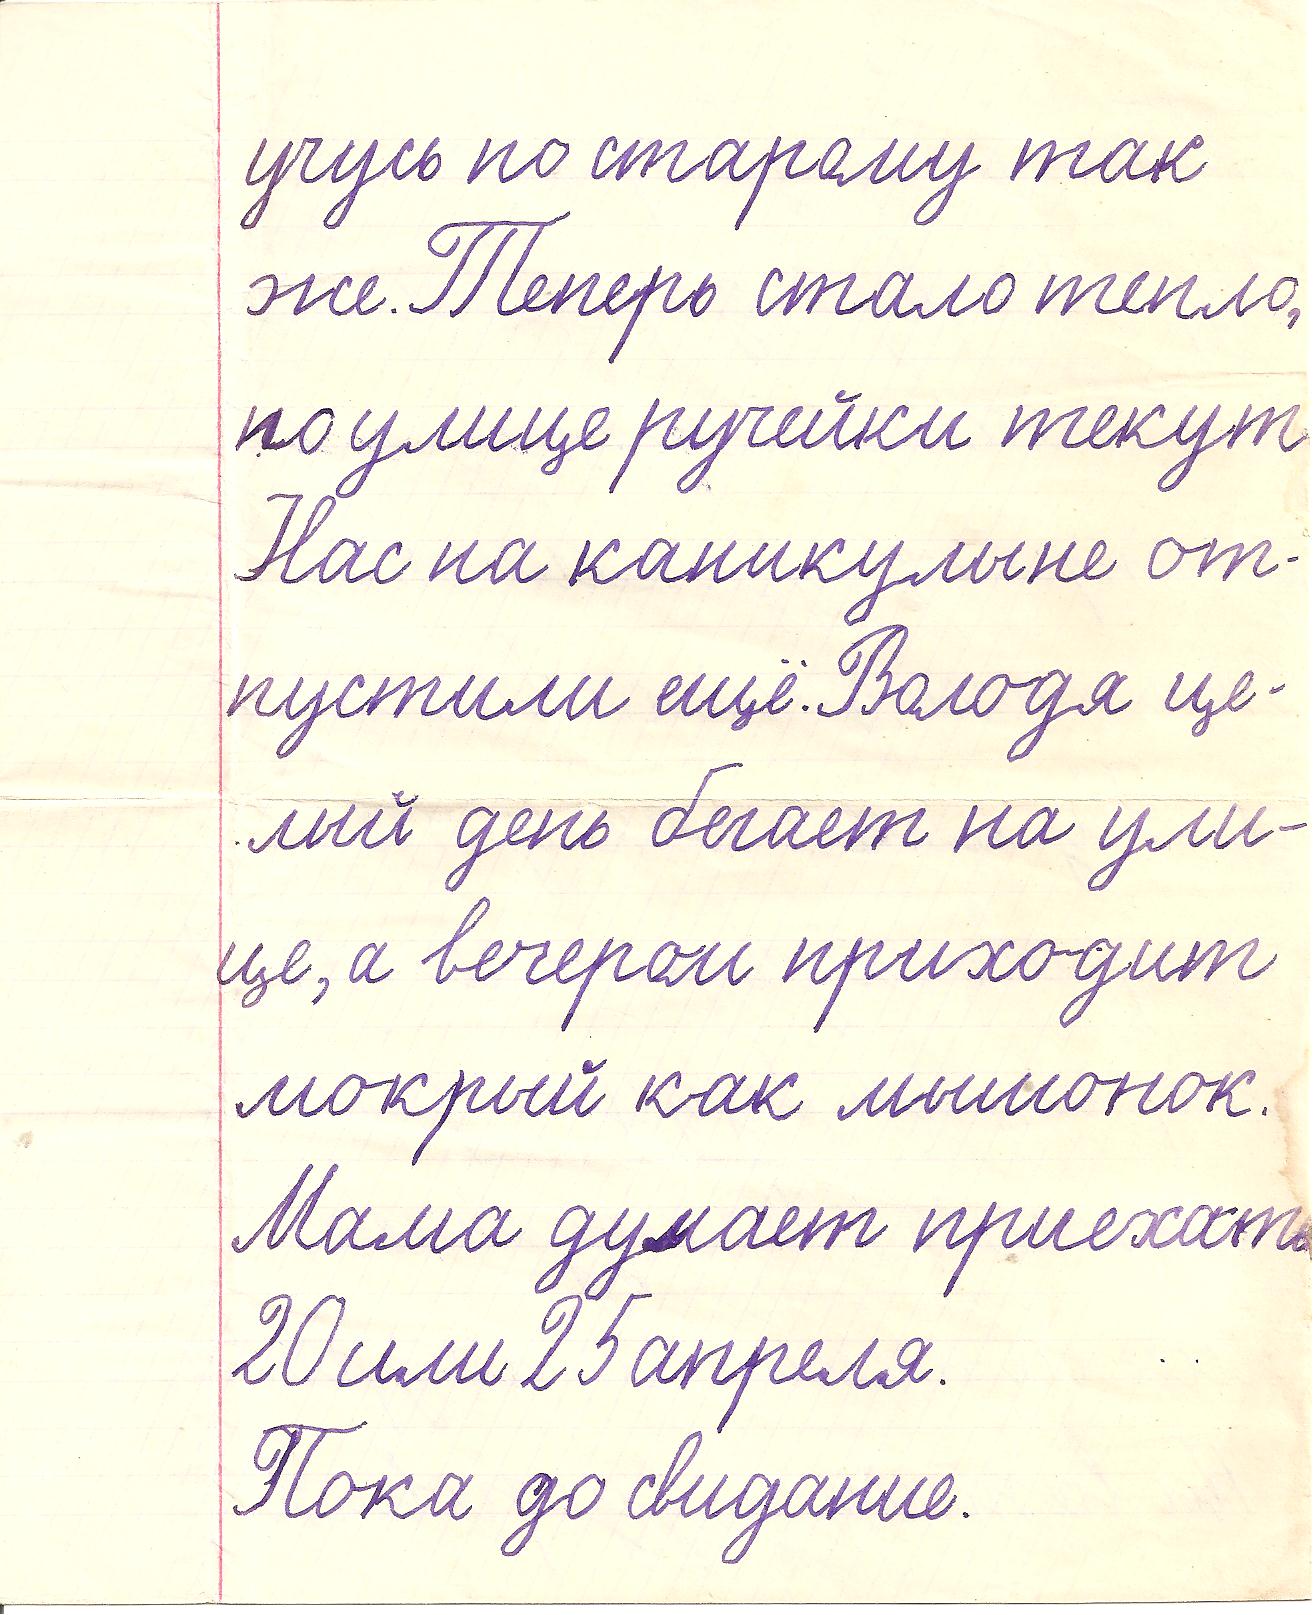 учусь по старому так
же. Теперь стало тепло,
по улице ручейки текут
Нас на каникулы не от-
пустили ещё. Володя це-
лый день бегает на ули-
це, а вечером приходит
мокрый как мышонок.
Мама думает приехать
20 или 25 апреля.
Пока до свидание.